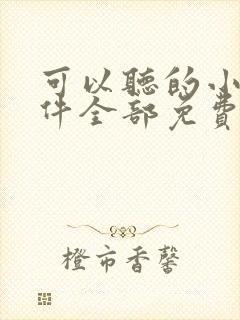 可以聽的小
件全部免費
橙市香馨